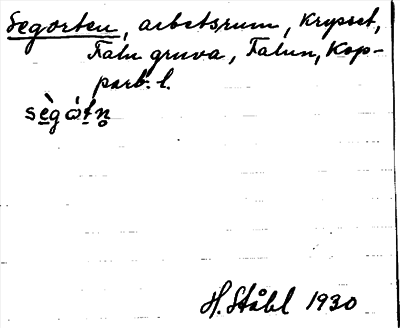 Segorten, arbetsrum, Krysset,
Falu gruva, Falun, Kop-
parb. l.
sègó̀tn̥
H. Ståhl 1930